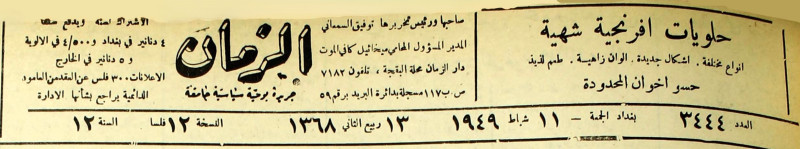 حلويات افرنجية شهية
انواع مختلفة . اشكال جديدة . الوان زاهية . طعم لذيذ
حسو اخوان المحدودة
صاحبها ورئيس تحريرها توفيق السمعاني
المدير المسؤول المحامي ميخائيل
دار الزمان محلة البقچة ، تلفون ٧١٨٢
ص.ب ١١٧ مسجلة بدائرة البريد برقم ٥٩
الزمان
جريدة يومية سياسية جامعة
الاشتراك لسنة ويدفع سلفا
٤ دنانير في بغداد و ٤/٥٠٠ في الالوية
و ٥ دنانير في الخارج
الاعلانات ٣٠ فلس عن العقد من العامود
الدائمية يراجع بشأنها الادارة
العدد ٣٤٤٤ بغداد الجمعة - ١١ شباط ١٩٤٩ ١٣ ربيع الثاني ١٣٦٨ النسخة ١٢ فلسا السنة ١٢